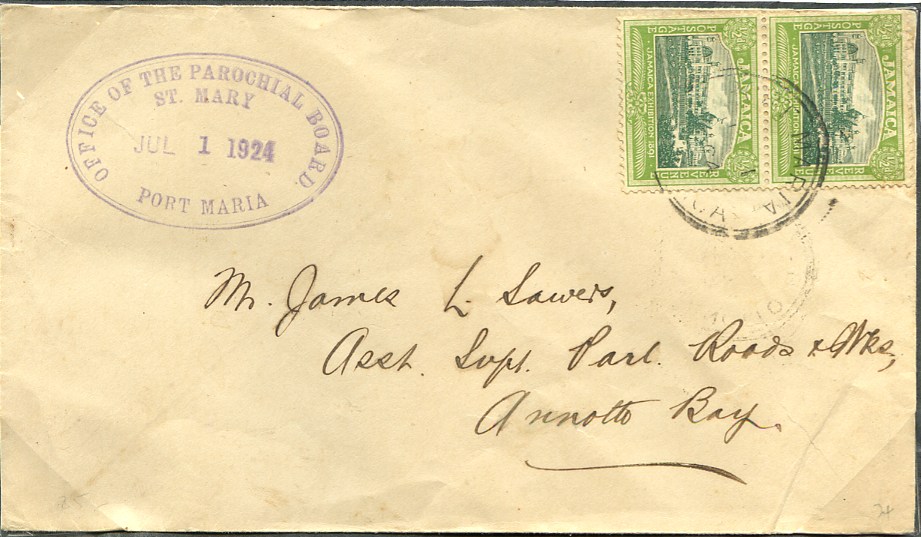 OFFICE OF THE PAROCHIAL BOARD.
ST. MARY
JUL 1 1924
PORT MARIA
JAMAICA
POSTAGE REVENUE
JAMAICA EXHIBITION 1891
½d
JAMAICA
POSTAGE REVENUE
JAMAICA EXHIBITION 1891
½d
MARIA
Mr. James L. Sawers,
Asst. Supt. Parl. Roads & Wks,
Annotto Bay.